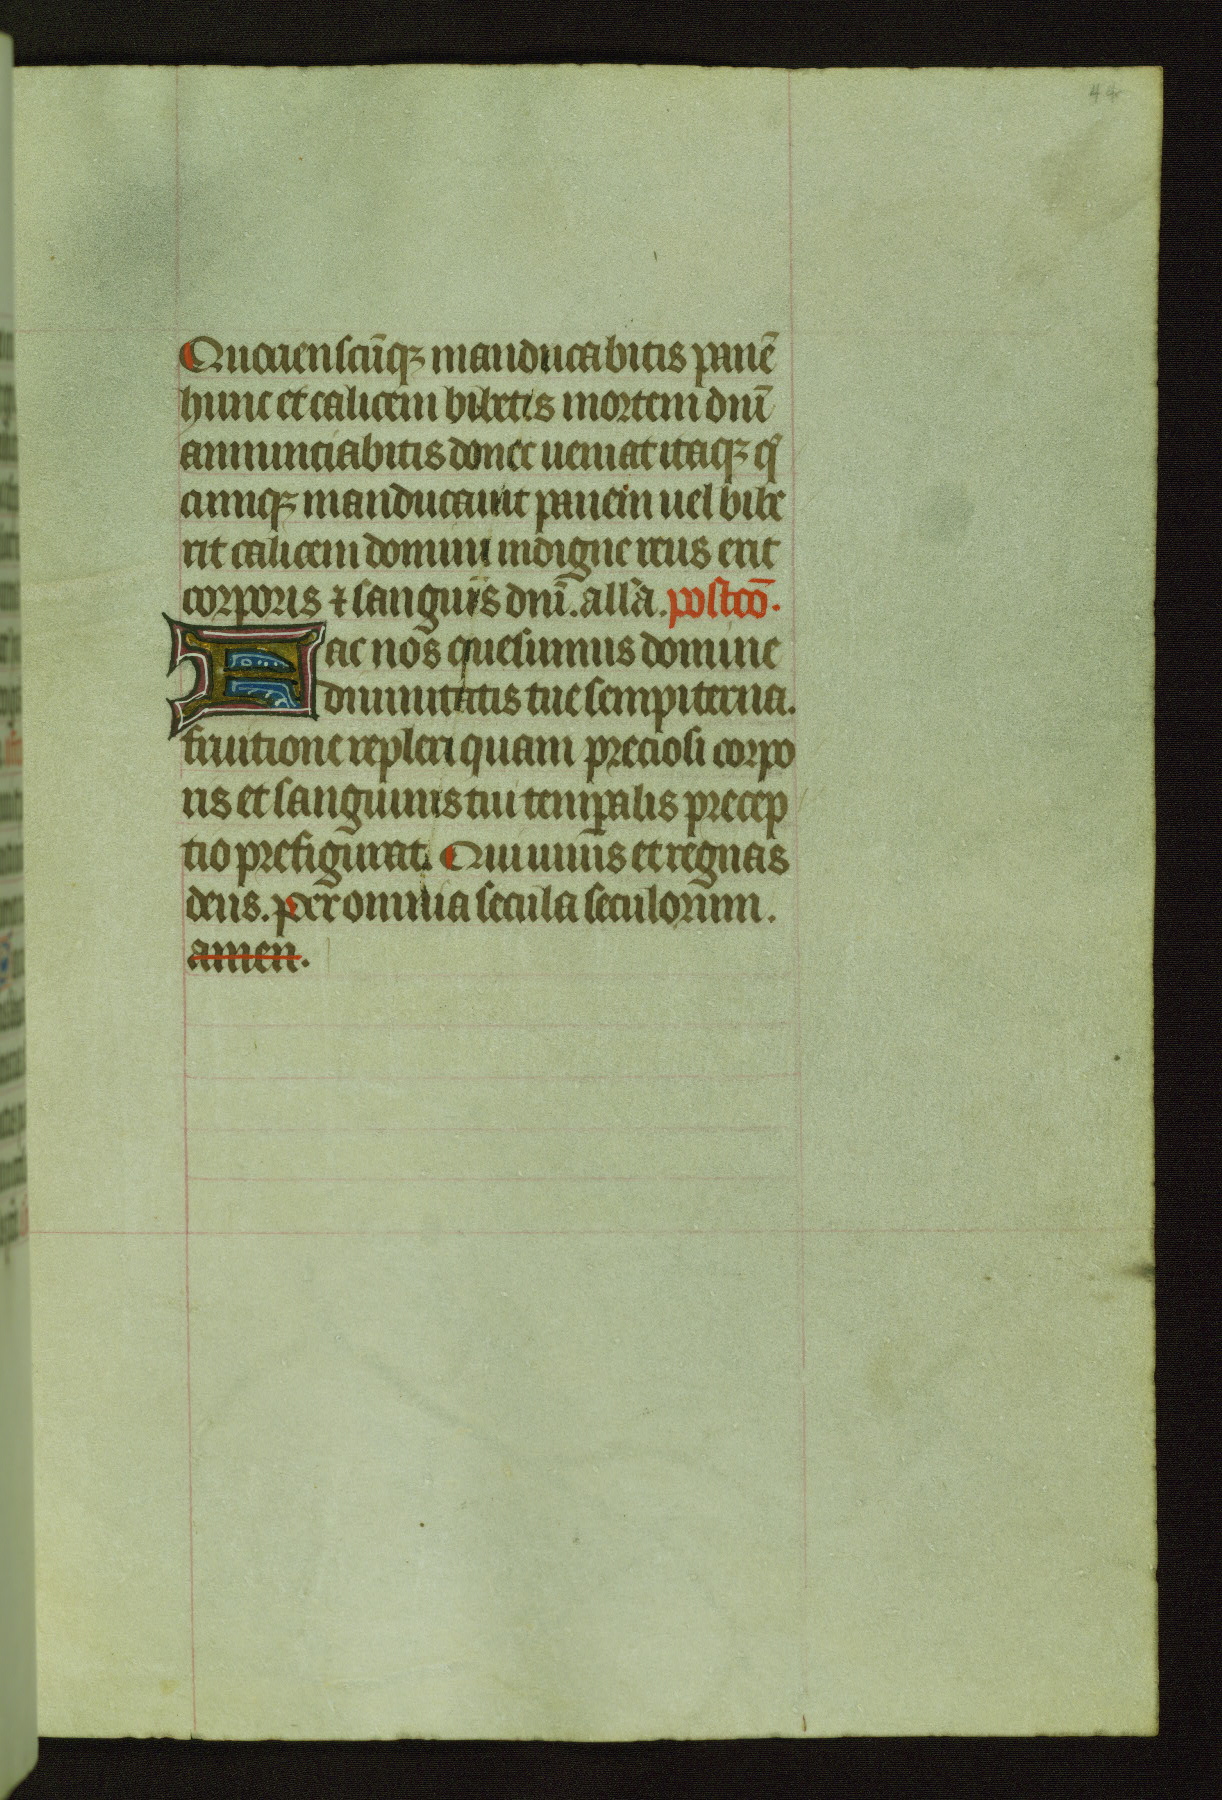 44
Quocienscūqꝫ manducabitis panē
hunc et calicem bibetis mortem dnī
annunciabitis donec ueniat itaqꝫ qͥ
cumqꝫ manducauit panem uel bibe
rit calicem domini indigne reus erit
corporis ⁊ sanguīs dnī. all'a. postcō.
Fac nos quesumus domine
diuinitatis tue sempiterna.
fruitione repleri quam preciosi corpo
ris et sanguinis tui temꝑalis precep
tio prefigurat. Qui uiuis et regnas
deus. Per omnia secula seculorum.
amen.